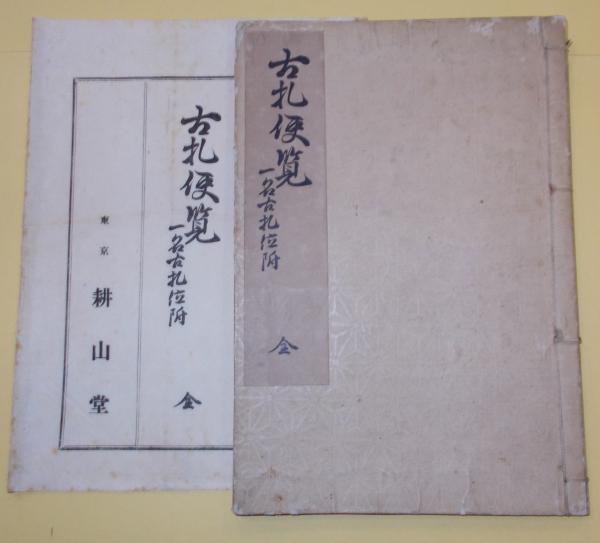 古札便覧
一名古札位附
全
古札便覧
一名古札位附
全
東京
耕山堂